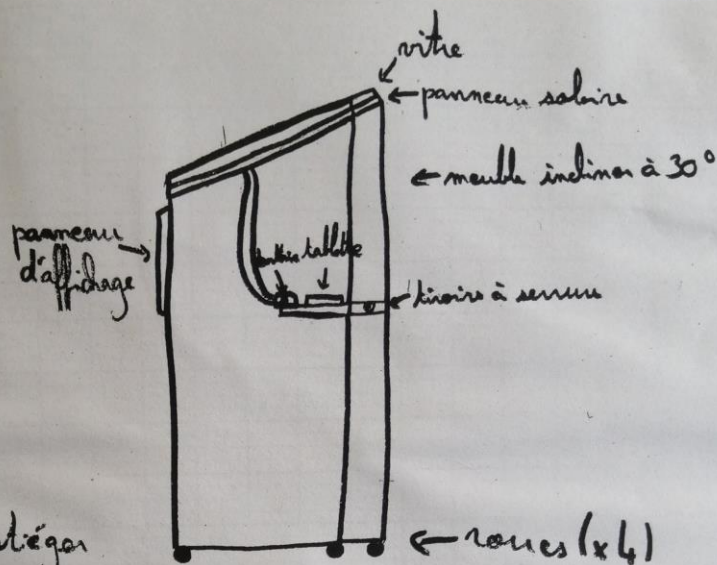 vitre
panneau solaire
meuble incliner à 30°
panneau
d'affichage
tablette
tiroirs à serrure
roues (x4)